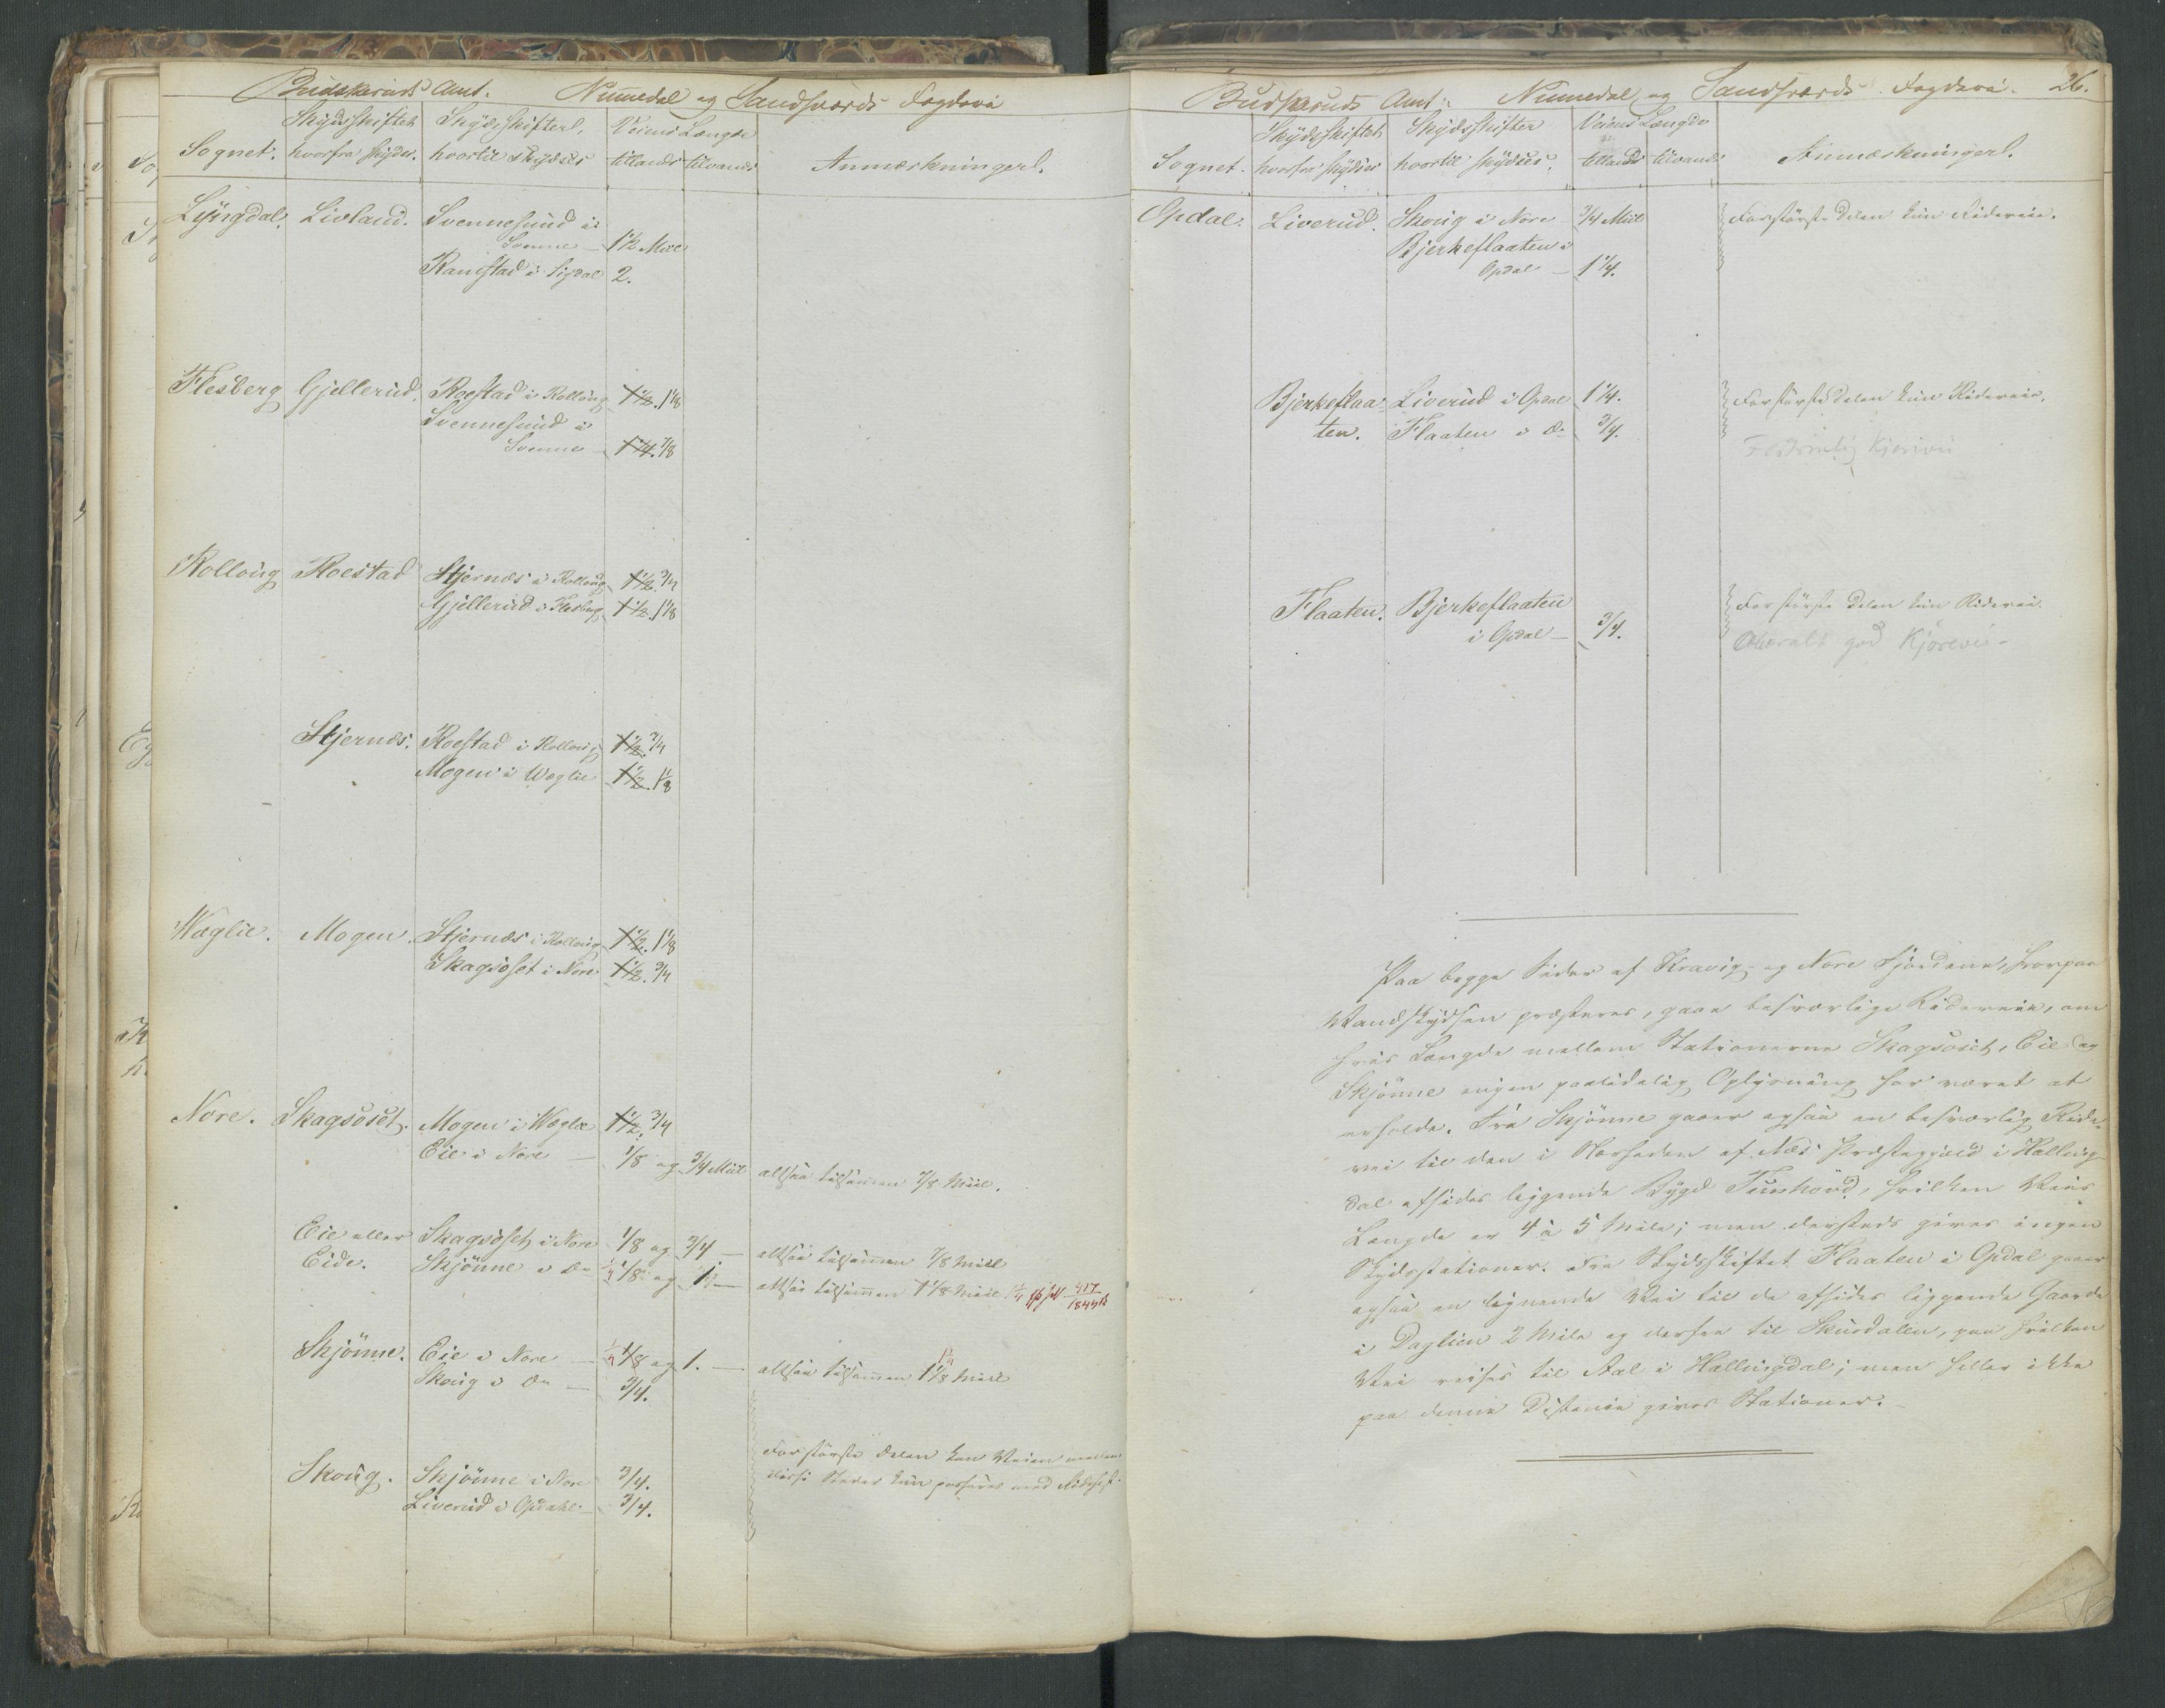 Budskeruds Amt. Numedal og Sandsværds Fogderi
Sognet. Skydsskiftet hvorfra skydses. Skydsskifterl. hvortil skydses Veiens Længde tillands tilvands Anmærkningerl.
Lyngdal. Livland. Svennesund i
Svenne — 1 1/2 Miil
Ramstad i Sigdal 2.
Flesberg Gjellerud. Roestad i Rolloug 1 1/2. 1 1/8
Svennesund i
Svenne — 1 1/4. 7/8
Rolloug Roestad Stjernæs i Rolloug 1 1/2. 3/4
Gjellerud i Flesberg 1 1/2. 1 1/8
Stjernæs. Roestad i Rolloug 1 1/2. 3/4
Mogen i Wæglie 1 1/2. 1 1/8
Wæglie. Mogen. Stjernæs i Rolloug 1 1/2. 1 1/8
Skagsoset i Nore 1 1/2. 3/4
Nore. Skagsoset. Mogen i Wæglie 1 1/2. 3/4
Eie i Nore — 1/8 og 3/4 Miil altsaa tilsammen 7/8 Miil.
Eie eller Skagsoset i Nore 1/8 og 3/4 — altsaa tilsammen 7/8 Miil
Eide. Skjönne i Do 1/4 1/8 og 1. — altsaa tilsammen 1 1/8 Miil 1 1/4 417/1844
Skjönne. Eie i Nore — 1/4 1/8 og 1. — altsaa tilsammen 1 1/8 Miil 1 1/4
Skoug i Do — 3/4.
Skoug. Skjönne i Nore 3/4. For störste Delen kan Veien mellem
Liverud i Opdahl — 3/4. disse Steder kun passeres med Ridehest.
Budskeruds Amt. Numedal og Sandsværds Fogderi. 26.
Sognet. Skydsskiftet hvorfra skydses Skydsskifter hvortil skydses. Veiens Længde tillands tilvands Anmærkningerl.
Opdal. Liverud. Skoug i Nore 3/4 Miil For störste Delen kun Rideveie.
Bjerkeflaaten i
Opdal — 1 1/4.
Bjerkeflaa- Liverud i Opdal 1 1/4. For störste Delen kun Rideveie.
ten. Flaaten i Do 3/4.
Kjörevei
Flaaten. Bjerkeflaaten For störste Delen kun Ridevei.
i Opdal — 3/4. Overalt god Kjörevei.
Paa begge Sider af Kravig- og Nore Fjordene, hvorpaa
Vandskydsen præsteres, gaae besværlige Rideveie, om
hvis Længde mellem Stationerne Skagsoset, Eie og
Skjönne ingen paalidelig Oplysning har været at
erholde. Fra Skjönne gaaer ogsaa en besværlig Ride-
vei til den i Nærheden af Næs Præstegjeld i Halling-
dal afsides liggende Bygd Tunhovd, hvilken Veis
Længde er 4 à 5 Mile; men dersteds gives ingen
Skydsstationer. Fra Skydsskiftet Flaaten i Opdal gaaer
ogsaa en lignende Vei til de afsides liggende Gaarde
i Daglien 2 Mile og derfra til Skurdalen, paa hvilken
Vei reises til Aal i Hallingdal; men heller ikke
paa denne Distance gives Stationer.